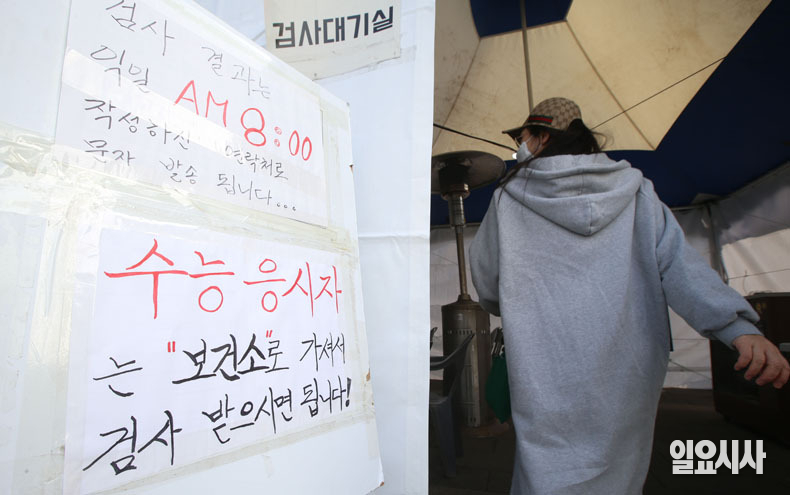 검사대기실
검사 결과는
익일 AM 8:00
작성하신 연락처로
문자 발송 됩니다...
수능 응시자
는 "보건소"로 가셔서
검사 받으시면 됩니다!
일요시사